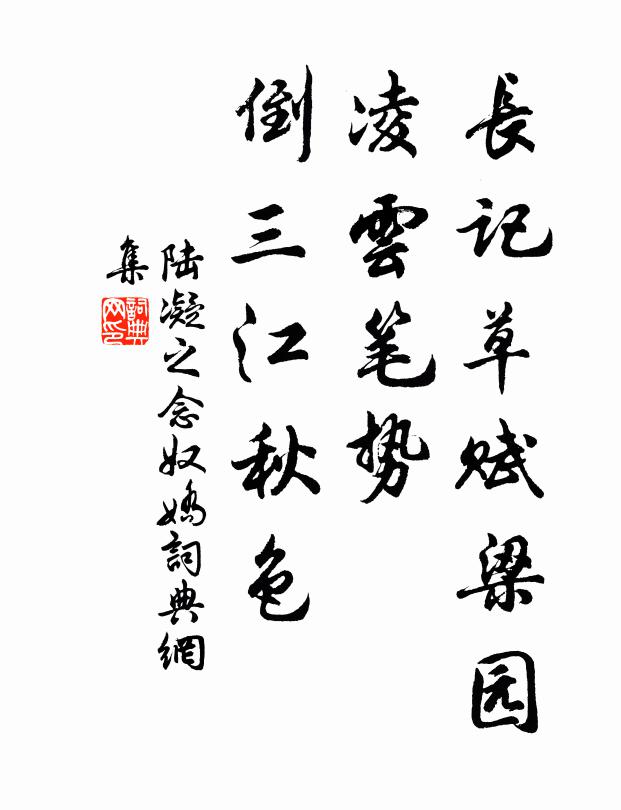 長记草赋梁园
凌雲笔势
倒三江秋色
陆凝之念奴嬌詞典網
集
詞典
网印